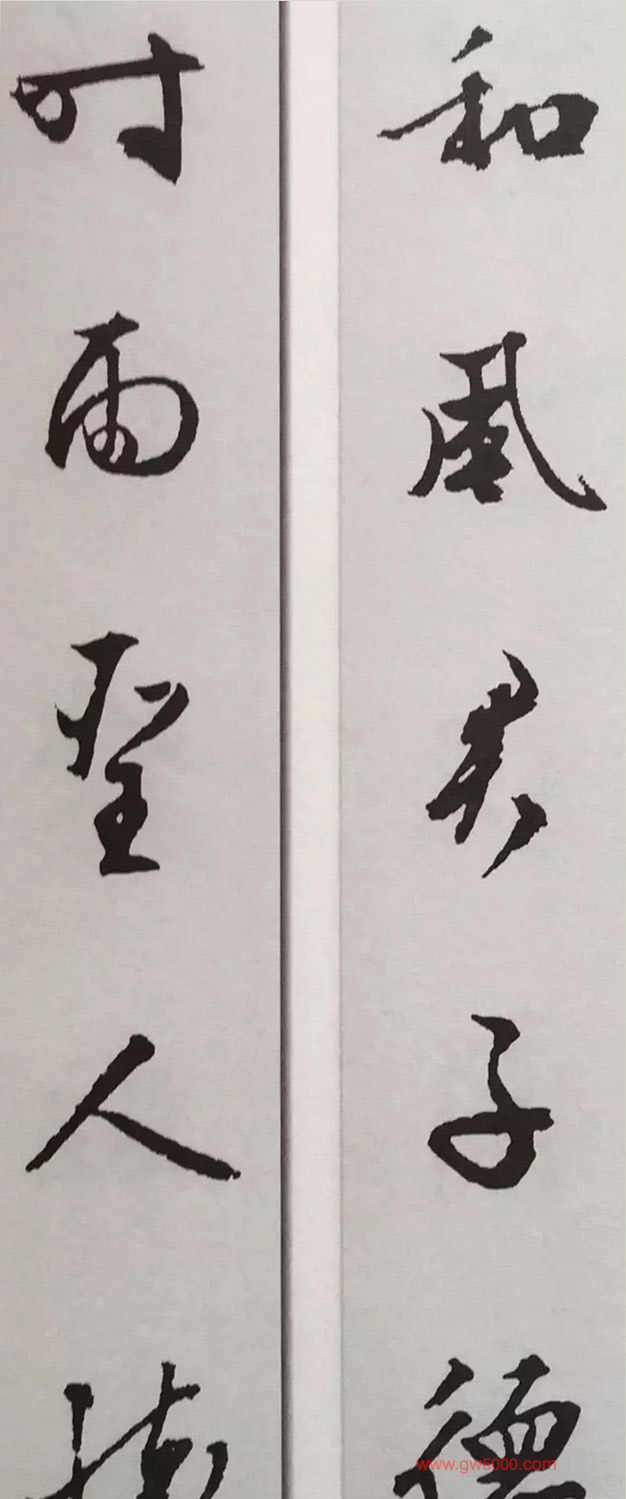 和風君子德
时雨聖人
www.gw5000.com